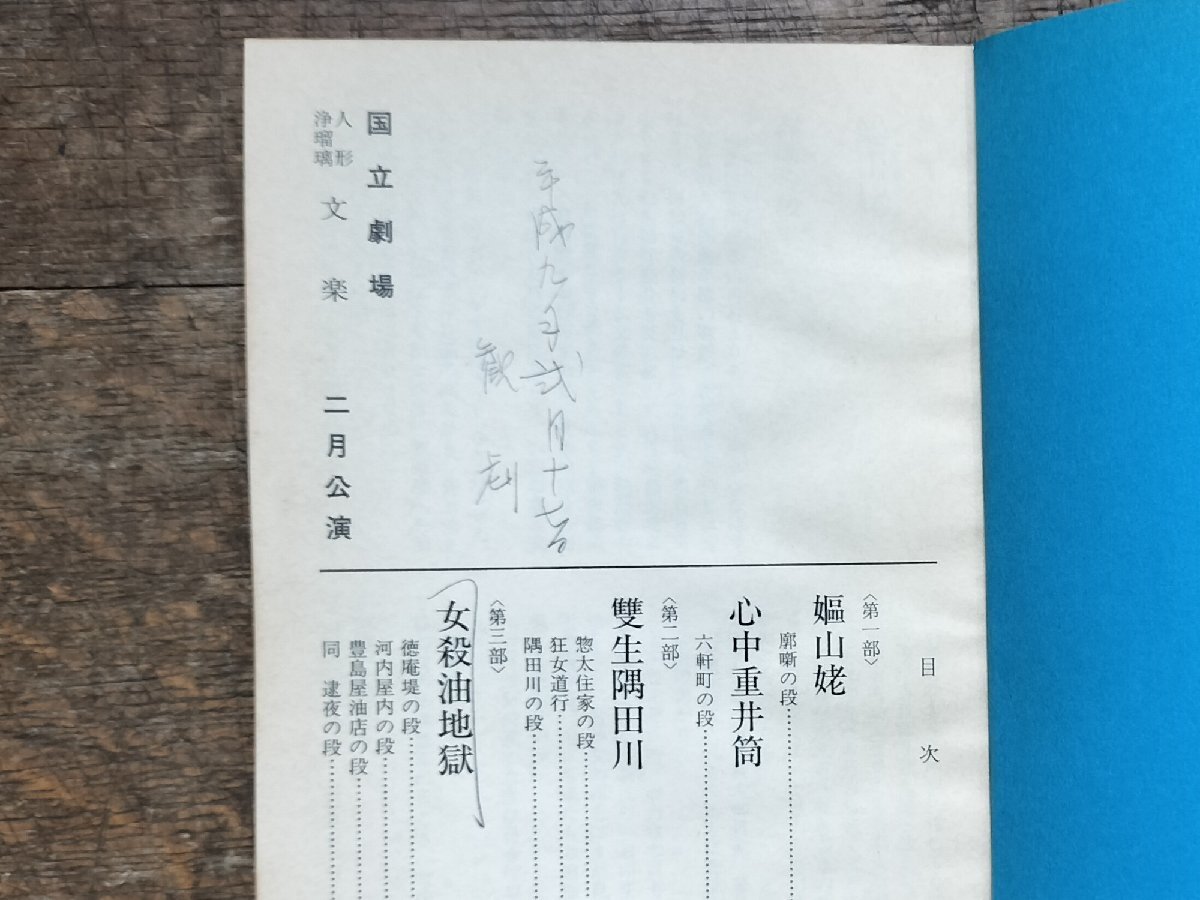 国立劇場
人形
浄瑠璃
文楽
二月公演
平成九年弐月十七日
観劇
目次
〈第一部〉
嫗山姥
廓噺の段
心中重井筒
六軒町の段
〈第二部〉
雙生隅田川
惣太住家の段
狂女道行
隅田川の段
〈第三部〉
女殺油地獄
徳庵堤の段
河内屋内の段
豊島屋油店の段
同 逮夜の段